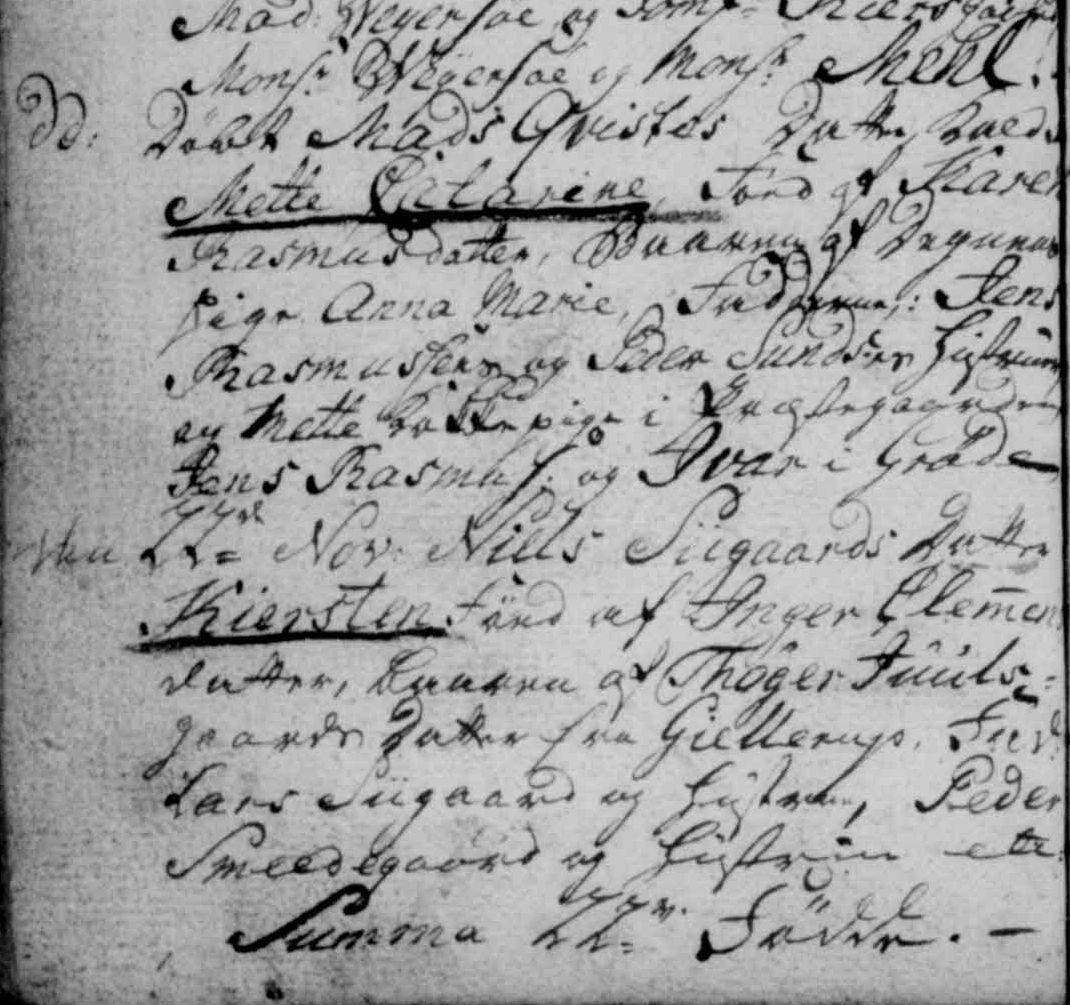 Mad: Weyersøe og Jomf:
Monsr Weyersøe og Monsr Mehl.
dd: Døbt Mads Qvistes Datter kald
Mette Catarine, Fød af Karen
Rasmusdatter, Baaren af Degnens
pige Anna Marie, Fadderne: Jens
Rasmussens og Peder Sunds Hustruer
og Mette pige i Præstegaarden
Jens Rasmus: og Ivar i Grøde
Den 22de Nov: Niels Siigaards Datter
Kiersten, Fød af Inger Clemen
datter, baaren af Thøger Juuls-
gaards Datter fra Giellerup, Fad:
Lars Siigaard og Hustrue, Peder
Smeedegaard og Hustrue etc.
Summa 22. Fødde. —